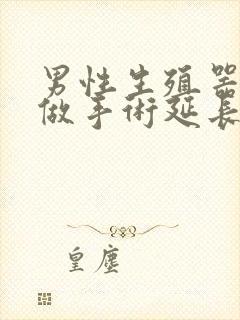 男性生殖器
做手術延長
皇塵